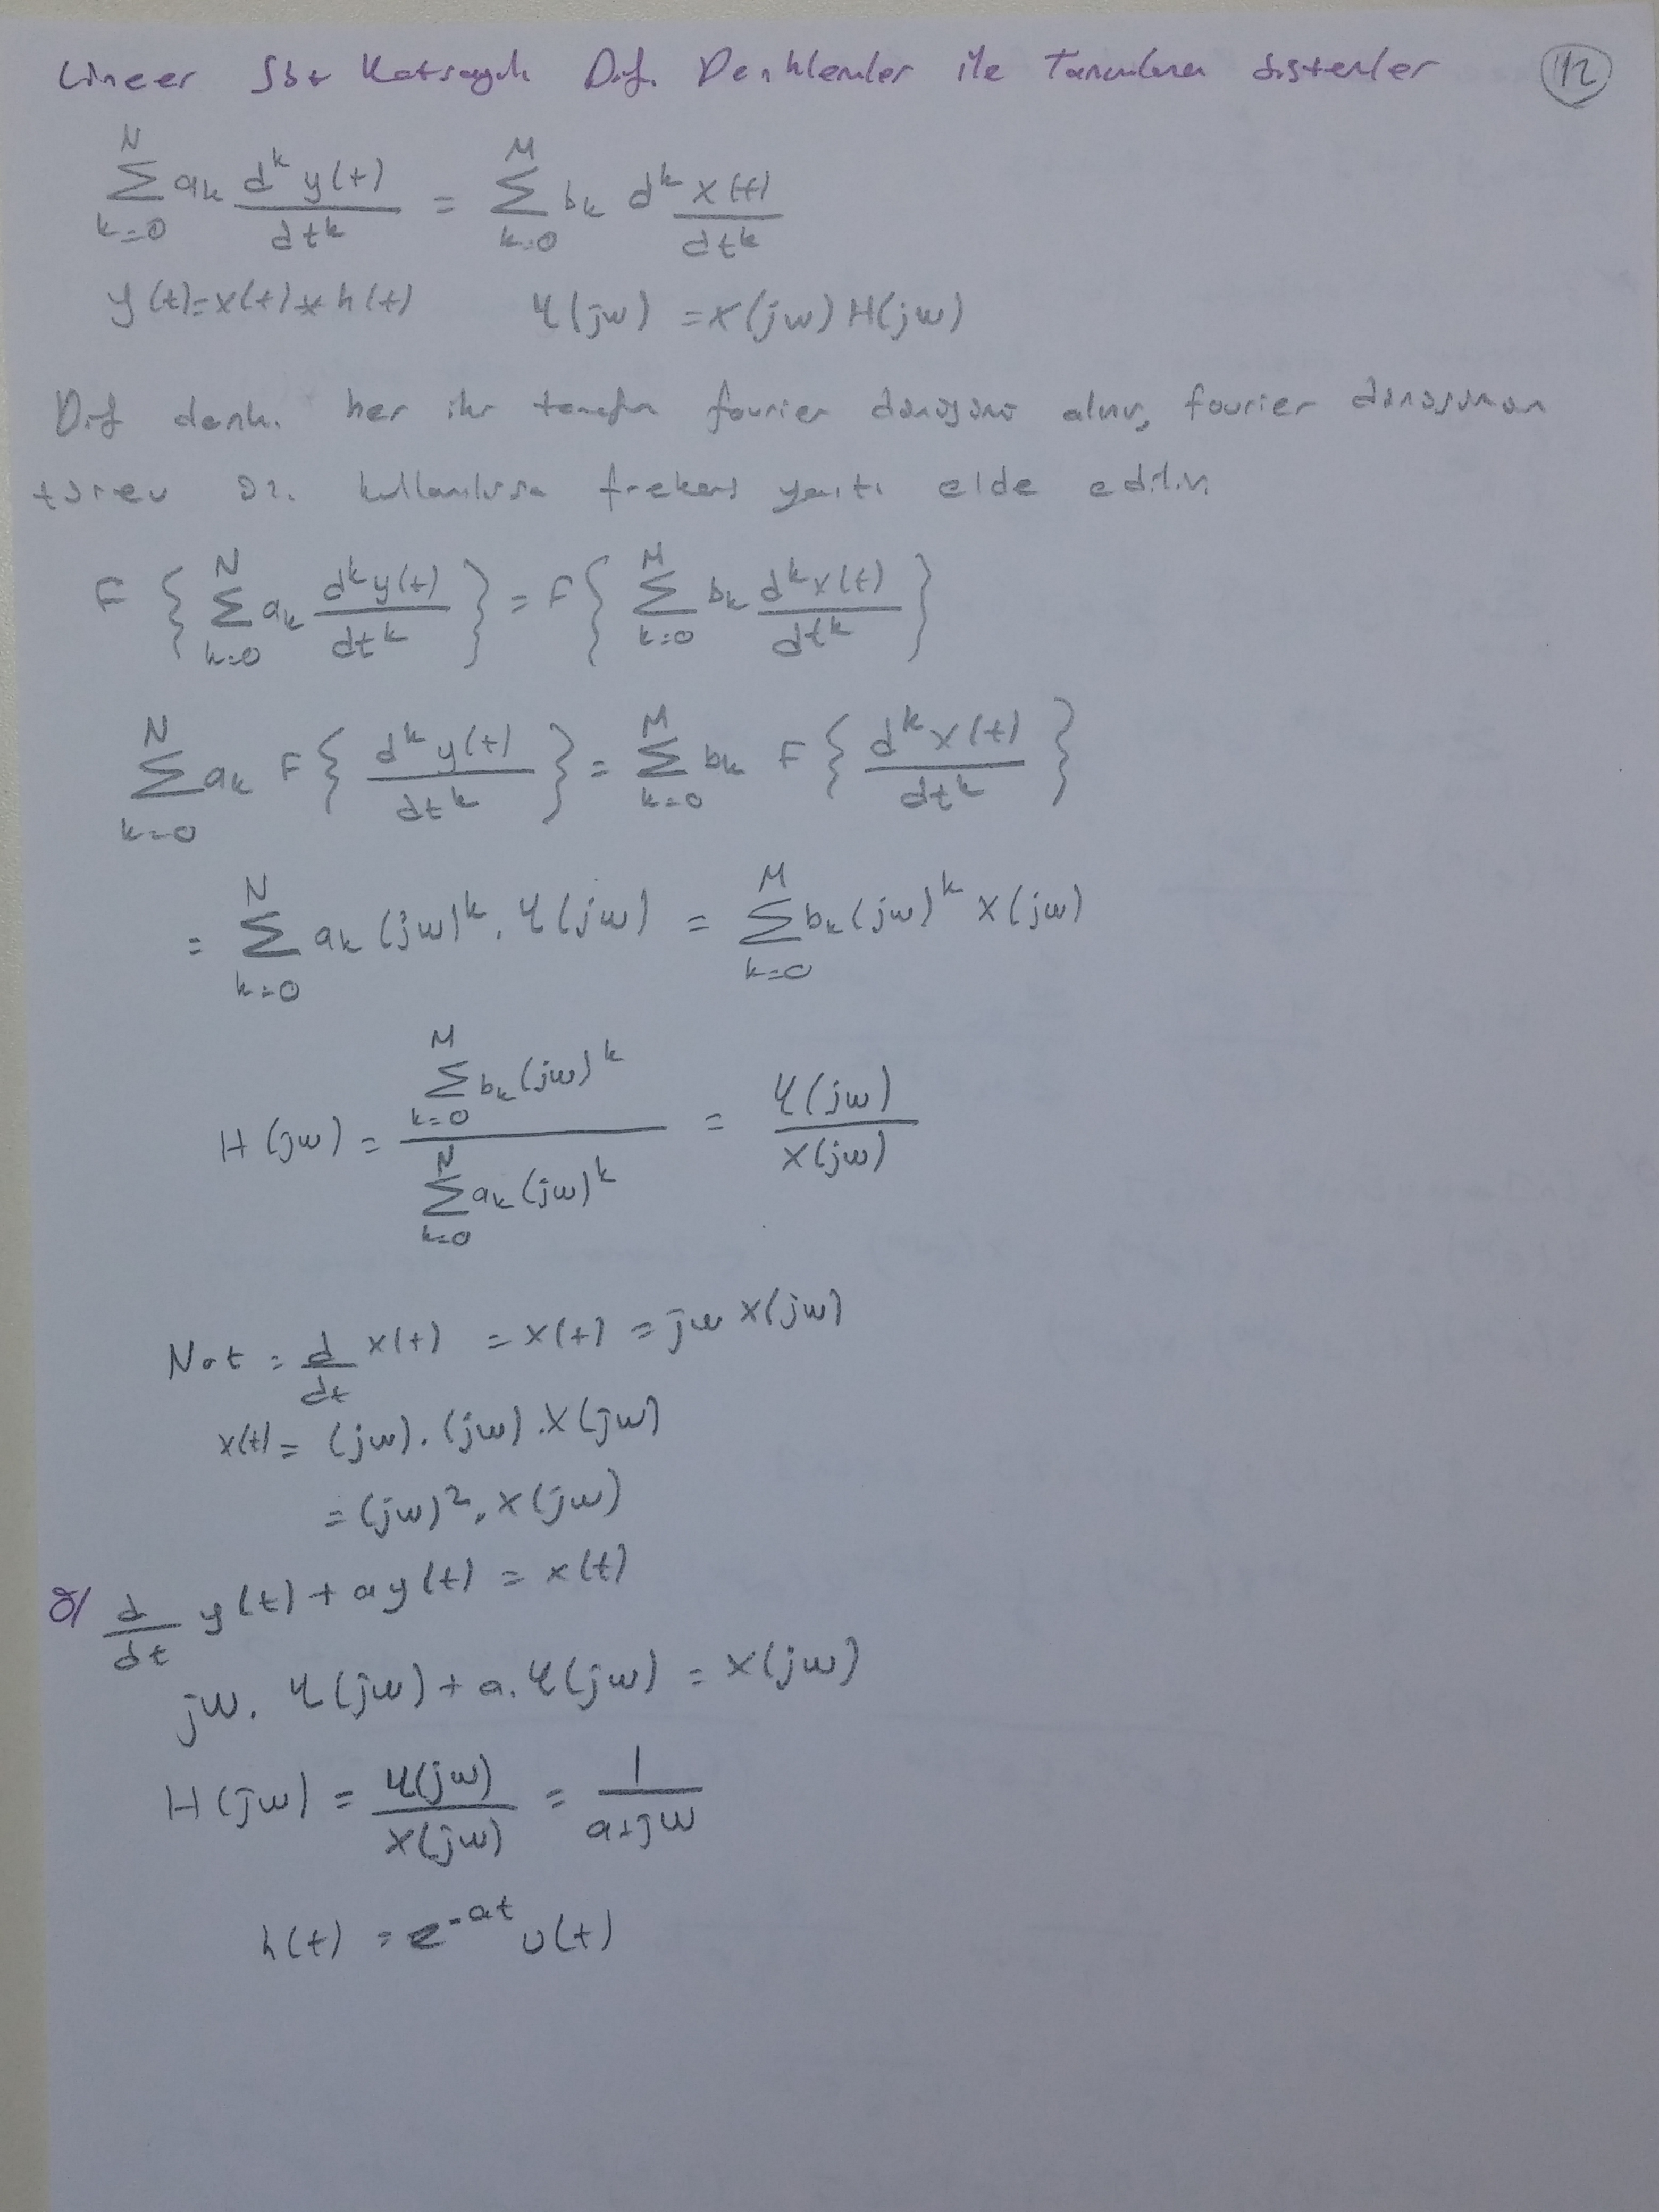 Lineer Sbt Katsayılı Dif. Denklemler ile Tanımlanan sistemler 12
\sum_{k=0}^{N} a_k \frac{d^k y(t)}{dt^k} = \sum_{k=0}^{M} b_k \frac{d^k x(t)}{dt^k}
y(t)=x(t)*h(t) Y(jw) = X(jw) H(jw)
Dif denk. her iki tarafın fourier dönüşümü alınır, fourier dönüşümün
türev öz. kullanılırsa frekans yanıtı elde edilir.
F \{ \sum_{k=0}^{N} a_k \frac{d^k y(t)}{dt^k} \} = F \{ \sum_{k=0}^{M} b_k \frac{d^k x(t)}{dt^k} \}
\sum_{k=0}^{N} a_k F \{ \frac{d^k y(t)}{dt^k} \} = \sum_{k=0}^{M} b_k F \{ \frac{d^k x(t)}{dt^k} \}
= \sum_{k=0}^{N} a_k (jw)^k . Y(jw) = \sum_{k=0}^{M} b_k (jw)^k X(jw)
H(jw) = \frac{\sum_{k=0}^{M} b_k (jw)^k}{\sum_{k=0}^{N} a_k (jw)^k} = \frac{Y(jw)}{X(jw)}
Not = \frac{d}{dt} x(t) = x(t) = jw X(jw)
x(t) = (jw).(jw).X(jw)
= (jw)^2 . X(jw)
Ö/ \frac{d}{dt} y(t) + ay(t) = x(t)
jw. Y(jw) + a. Y(jw) = X(jw)
H(jw) = \frac{Y(jw)}{X(jw)} = \frac{1}{a+jw}
h(t) = e^{-at} u(t)